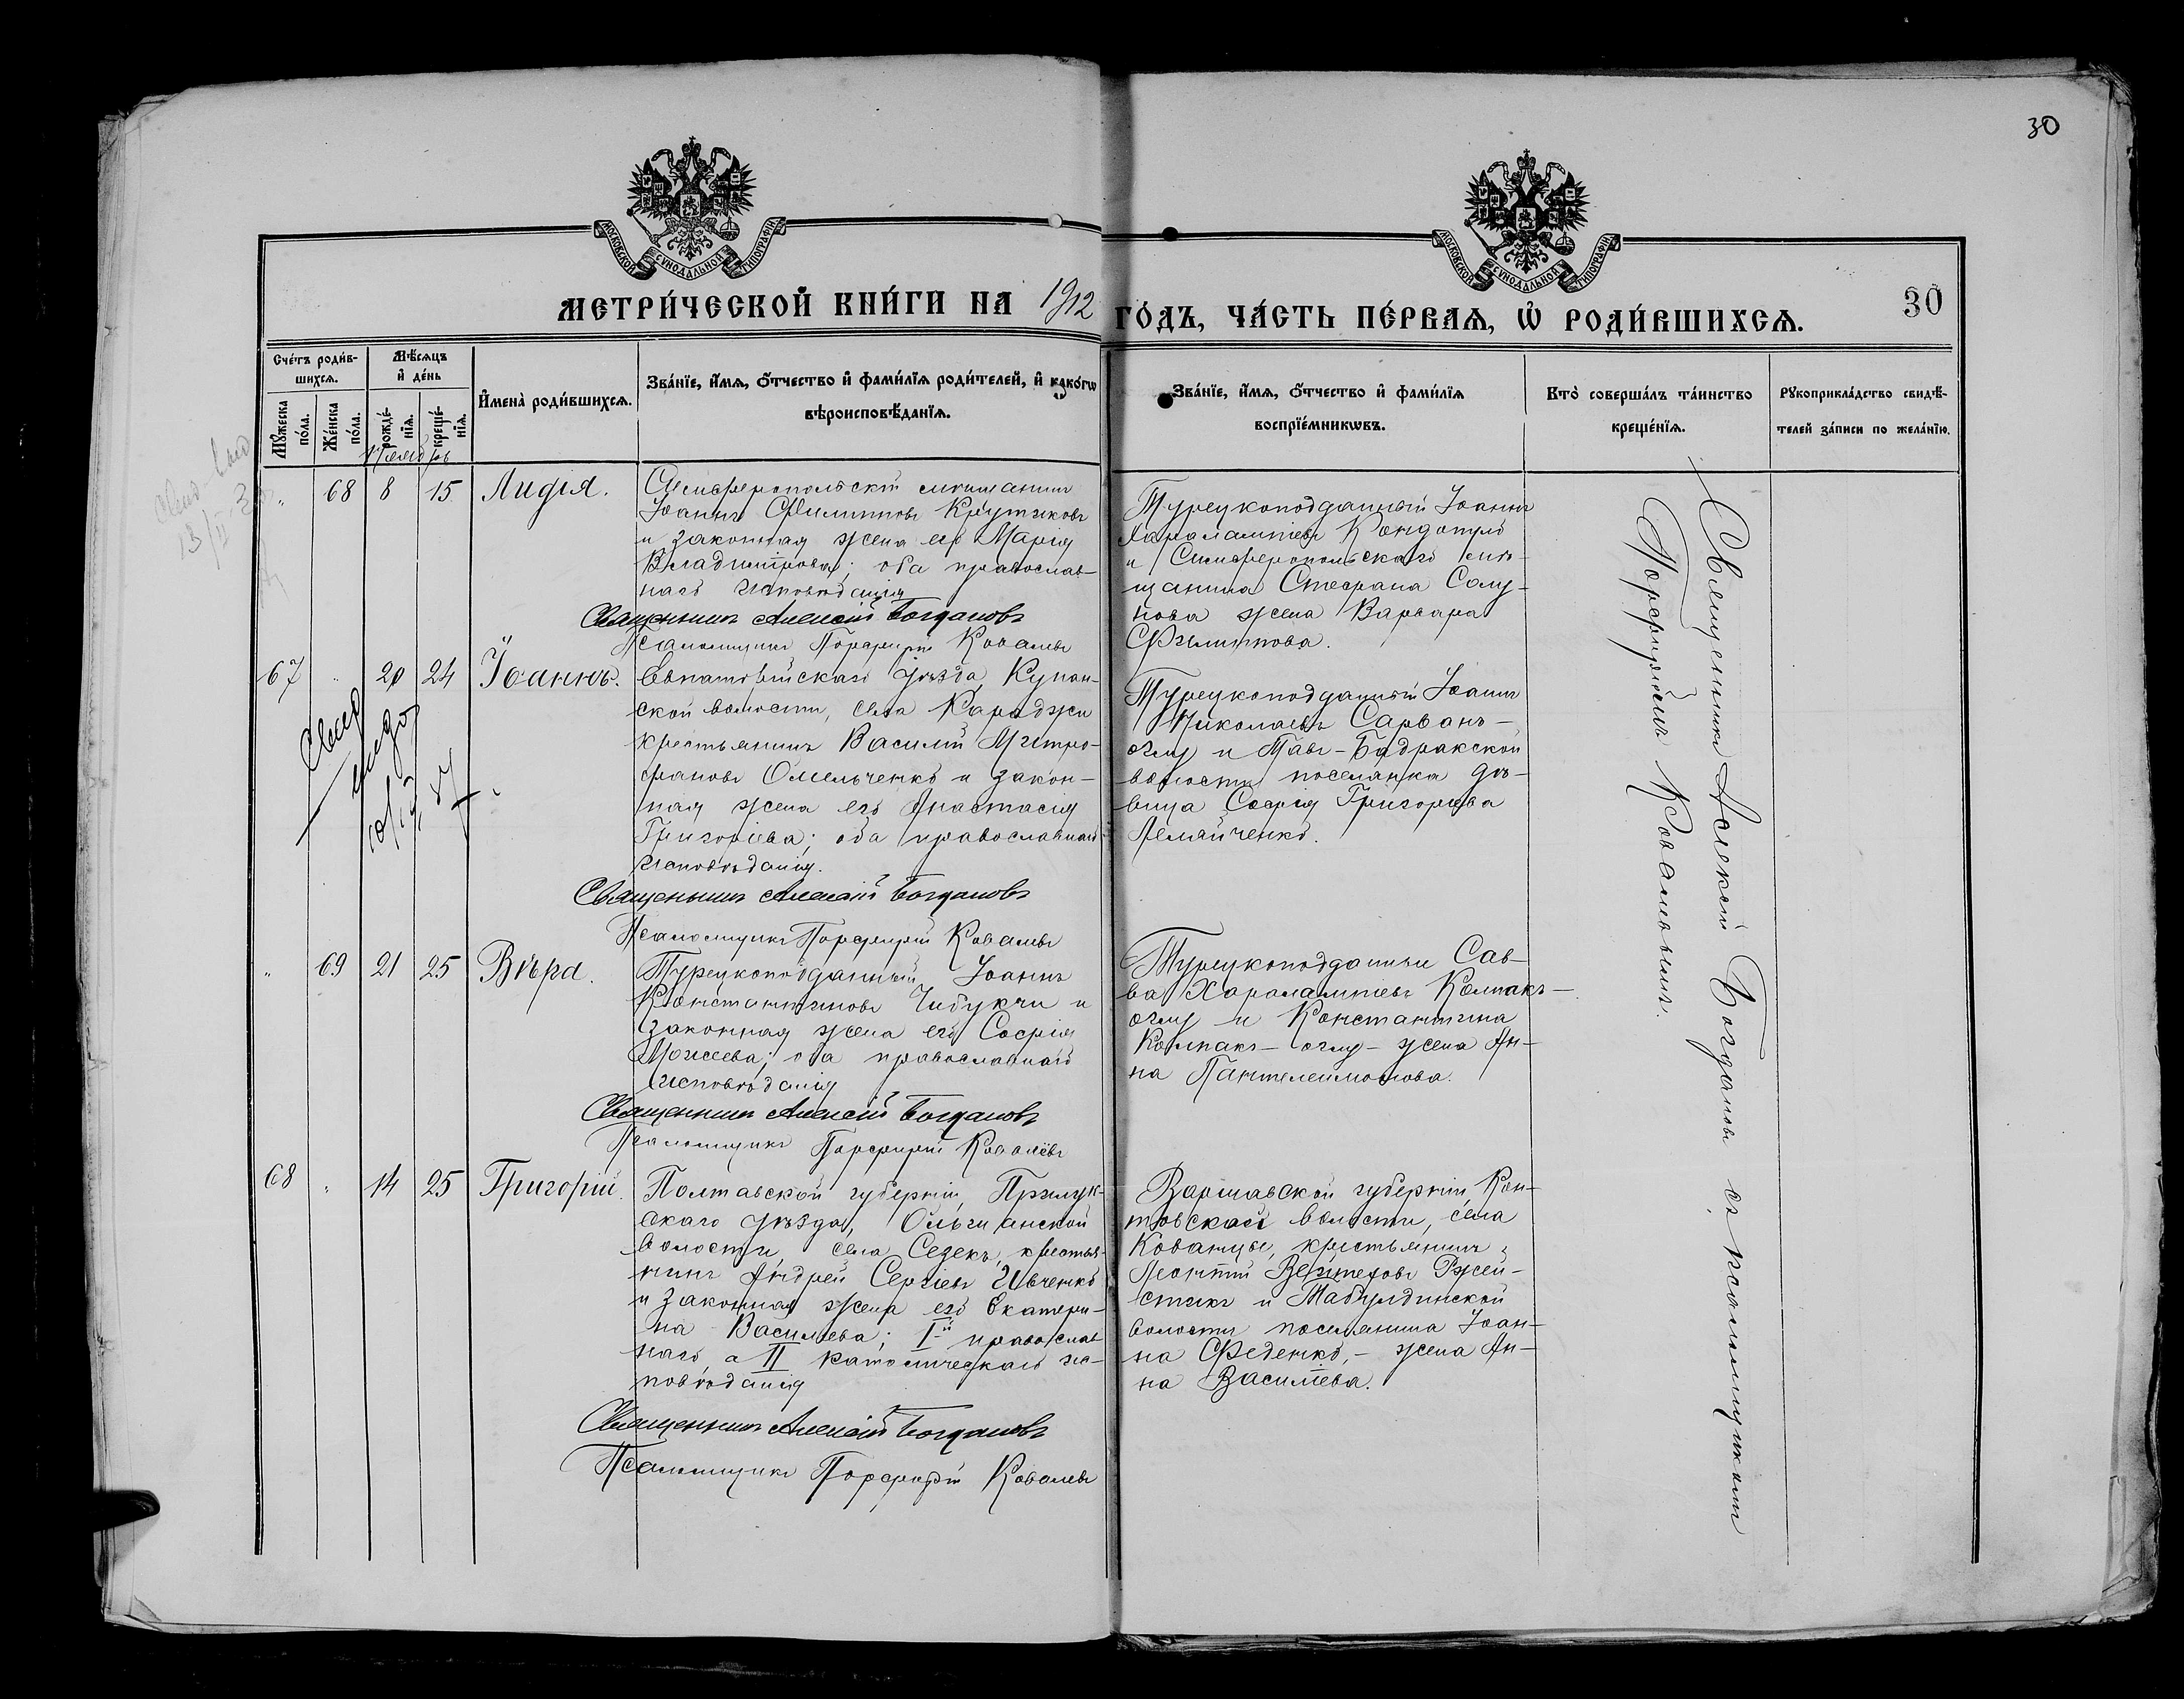 30
МОСКОВСКОЙ СѴНОДАЛЬНОЙ ТИПОГРАФІИ
МОСКОВСКОЙ СѴНОДАЛЬНОЙ ТИПОГРАФІИ
МЕТРИ́ЧЕСКОЙ КНИ́ГИ НА 1912 ГО́ДЪ, ЧА́СТЬ ПЕ́РВАѦ, Ѡ҆ РОДИ́ВШИХСѦ.
30
Сче́тъ роди́в-
шихсѧ.
Мꙋ́жеска по́ла.
Же́нска по́ла.
Мѣ́сѧцъ
и҆ де́нь
рожде́-
нїѧ.
креще́-
нїѧ.
И҆мена̀ роди́вшихсѧ.
Зва́нїе, и҆́мѧ, ѻ҆́тчество и҆ фами́лїѧ роди́телей, и҆ како́гѡ
вѣроисповѣ́данїѧ.
Зва́нїе, и҆́мѧ, ѻ҆́тчество и҆ фами́лїѧ
воспрїе́мникѡвъ.
Кто̀ соверша́лъ та́инство
креще́нїѧ.
Рꙋкоприкла́дство свидѣ́-
телей за́писи по жела́нїю.
" 68 8 15 Лидія.
Симферопольскій мѣщанинъ
Іоаннъ Филипповъ Крутиковъ
и законная жена его Марія
Владимірова; оба православ-
наго исповѣданія
Священникъ Алексій Богдановъ
Псаломщикъ Порфирій Ковалевъ
Турецкоподданный Іоаннъ
Харалампіевъ
и Симферопольскаго мѣ-
щанина Стефана Солу-
нова жена Варвара
Филиппова.
67 " 20 24 Іоаннъ.
Евпаторійскаго уѣзда, Кунан-
ской волости, села Караджи
крестьянинъ Василій Митро-
фановъ Омельченко и закон-
ная жена его Анастасія
Григоріева; оба православнаго
исповѣданія.
Священникъ Алексій Богдановъ
Псаломщикъ Порфирій Ковалевъ
Турецкоподданный Іоаннъ
Николаевъ Сарванъ-
оглу и Тавъ-Бадракской
волости поселянка дѣ-
вица Софія Григорьева
" 69 21 25 Вѣра.
Турецкоподданный Іоаннъ
Константиновъ Чибукчи и
законная жена его Софія
Моисеева; оба православнаго
исповѣданія
Священникъ Алексій Богдановъ
Псаломщикъ Порфирій Ковалёвъ
Турецкоподданные Сав-
ва Харалампіевъ Колпакъ-
оглу и Константина
Колпакъ-оглу - жена Ан-
на Пантелеймонова.
68 " 14 25 Григорій.
Полтавской губерніи, Прилук-
скаго уѣзда, Ольшанской
волости, села крестья-
нинъ Андрей Сергіевъ Ивченко
и законная жена его Екатери-
на Васильева; I-й православ-
наго, а II католическаго ис-
повѣданія
Священникъ Алексій Богдановъ
Псаломщикъ Порфирій Ковалевъ
Варшавской губерніи,
волости, села
крестьянинъ
Леонтій
и Табулдинской
волости поселянина Іоан-
на Феденко, - жена Ан-
на Васильева.
Священникъ Алексій Богдановъ съ псаломщикомъ
Порфиріемъ Ковалевымъ.